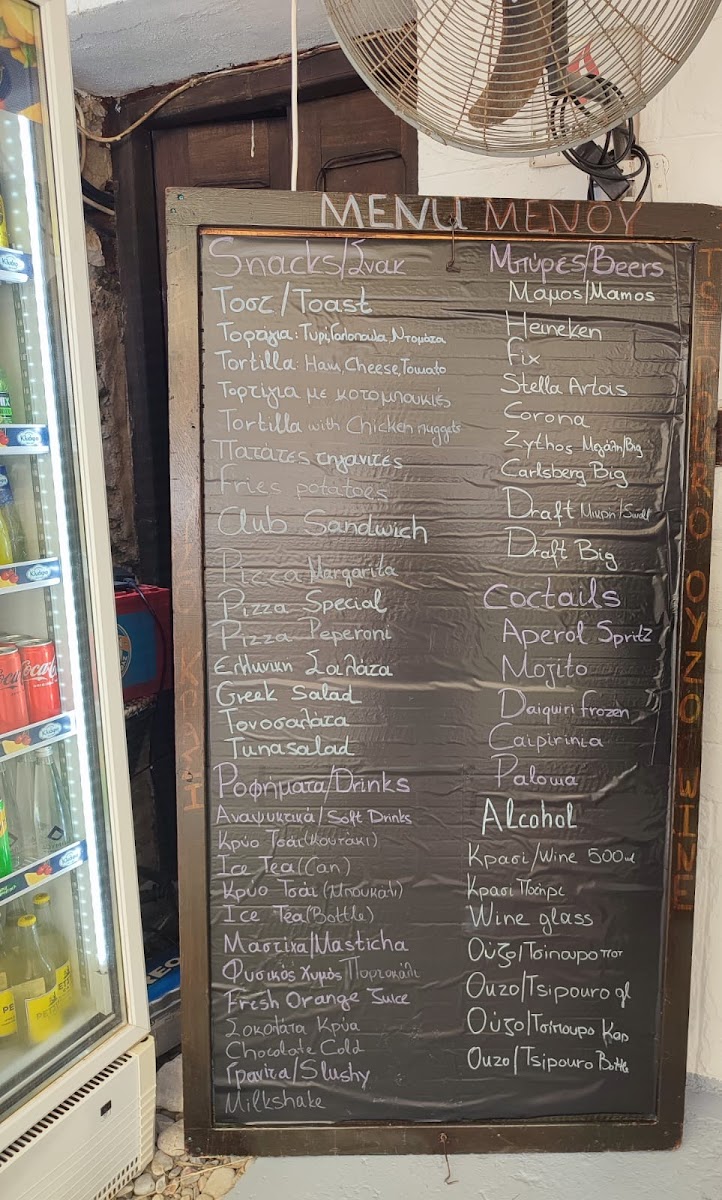 MENU ΜΕΝΟΥ
Snacks/Σνακ
Τοστ/Toast
Τορτιγια: Τυρι, Γαλοπουλα, Ντοματα
Tortilla: Ham, Cheese, Tomato
Τορτιγια με κοτομπουκιές
Tortilla with Chicken nuggets
Πατάτες τηγανιτές
Fries potatoes
Club Sandwich
Pizza Margarita
Pizza Special
Pizza Peperoni
Ελληνικη Σαλάτα
Greek Salad
Τονοσαλάτα
Tunasalad
Ροφήματα/Drinks
Αναψυκτικά/Soft Drinks
Κρύο Τσάι (Κουτάκι)
Ice Tea (Can)
Κρύο Τσάι (Μπουκάλι)
Ice Tea (Bottle)
Μαστίχα/Masticha
Φυσικός Χυμός Πορτοκάλι
Fresh Orange Juice
Σοκολάτα Κρύα
Chocolate Cold
Γρανίτα/Slushy
Milkshake
Μπύρες/Beers
Μαμος/Mamos
Heineken
Fix
Stella Artois
Corona
Zythos Μεγάλη/Big
Carlsberg Big
Draft Μικρη/Small
Draft Big
Coctails
Aperol Spritz
Mojito
Daiquiri frozen
Caipirinia
Paloma
Alcohol
Κρασί/Wine 500ml
Κρασι Ποτηρι
Wine glass
Ούζο/Τσιπουρο ποτ
Ouzo/Tsipouro gl
Ούζο/Τσίπουρο Καρ
Ouzo/Tsipouro Bottle
OUZO WINE
ΚΡΑΣΙ
Coca-Cola
Κλιάφα